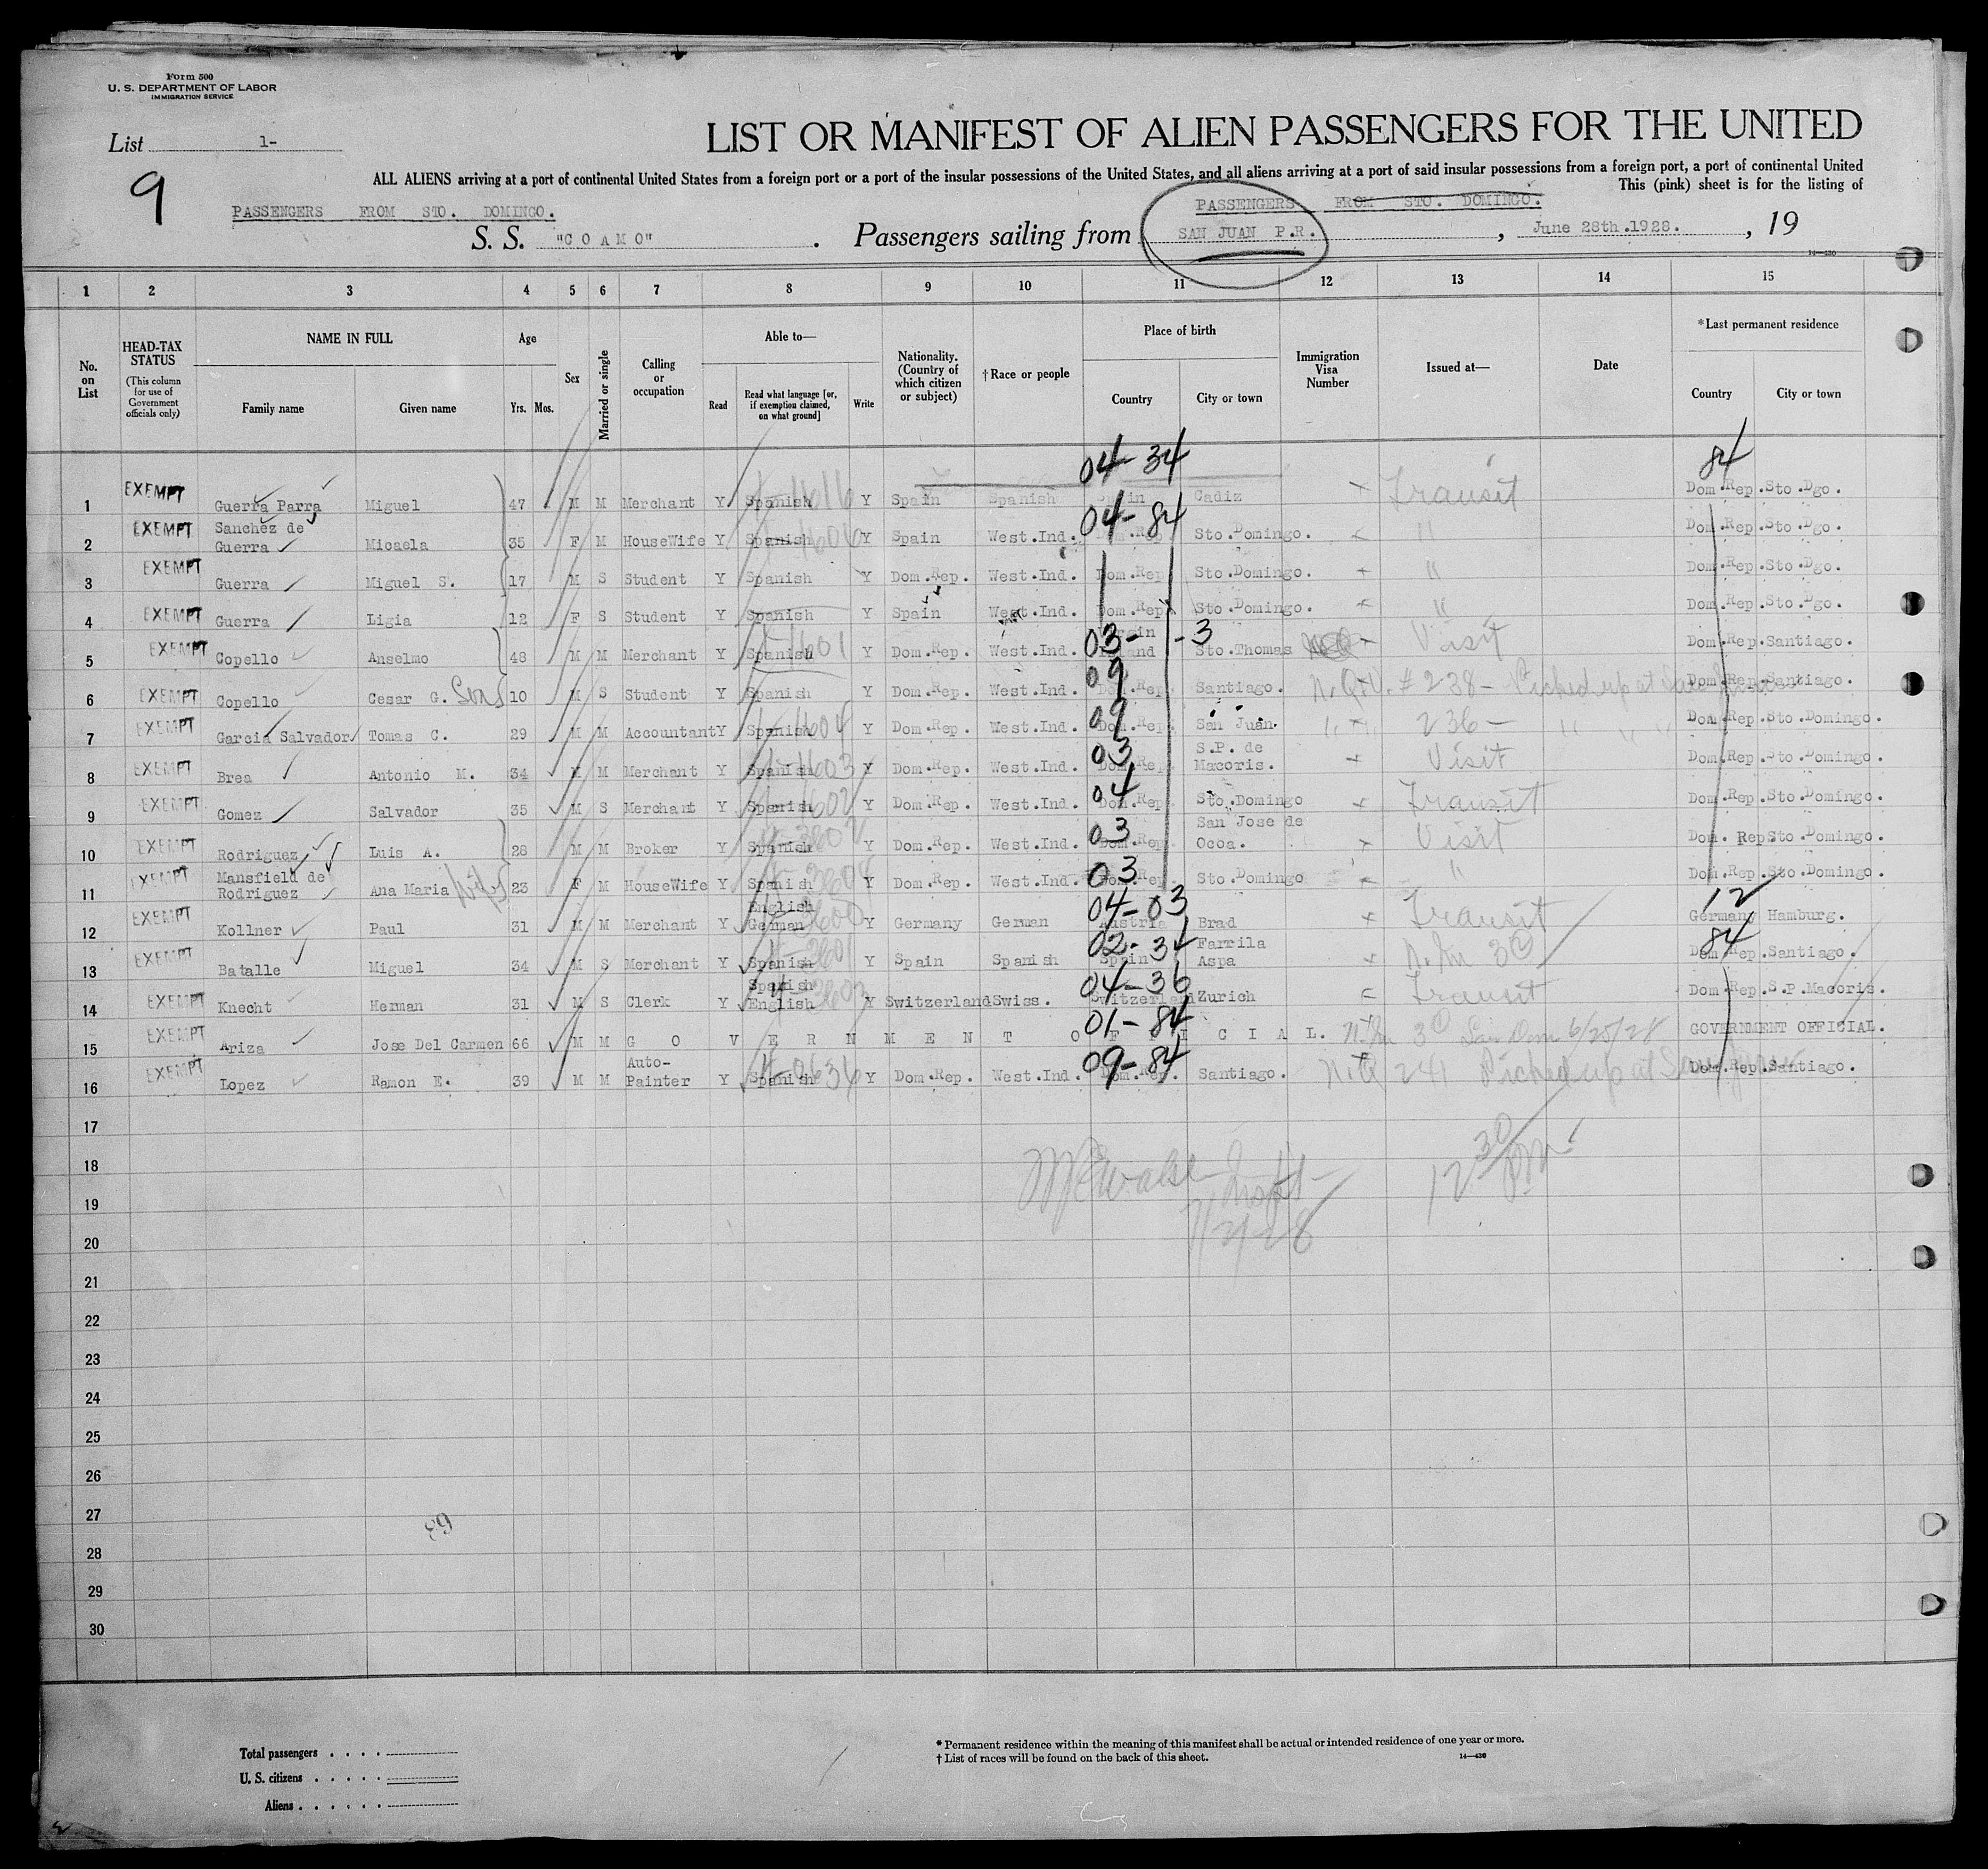 Form 500
U. S. DEPARTMENT OF LABOR
IMMIGRATION SERVICE
List 1-
9
LIST OR MANIFEST OF ALIEN PASSENGERS FOR THE UNITED
ALL ALIENS arriving at a port of continental United States from a foreign port or a port of the insular possessions of the United States, and all aliens arriving at a port of said insular possessions from a foreign port, a port of continental United
This (pink) sheet is for the listing of
PASSENGERS FROM STO. DOMINGO.
PASSENGERS FROM STO. DOMINGO.
S. S. "COAMO" . Passengers sailing from SAN JUAN P.R. , June 28th.1928. , 19
14—430
1 2 3 4 5 6 7 8 9 10 11 12 13 14 15
No. on List
HEAD-TAX STATUS
(This column for use of Government officials only)
NAME IN FULL
Family name Given name
Age
Yrs. Mos.
Sex
Married or single
Calling or occupation
Able to—
Read
Read what language [or, if exemption claimed, on what ground]
Write
Nationality. (Country of which citizen or subject)
† Race or people
Place of birth
Country City or town
Immigration Visa Number
Issued at—
Date
* Last permanent residence
Country City or town
04-34 84
1 EXEMPT Guerra Parra Miguel 47 M M Merchant Y Spanish Y Spain Spanish Spain Cadiz Transit Dom.Rep. Sto.Dgo.
04-84
2 EXEMPT Sanchez de Guerra Micaela 35 F M HouseWife Y Spanish Y Spain West.Ind. Dom.Rep. Sto.Domingo. " Dom.Rep. Sto.Dgo.
3 EXEMPT Guerra Miguel S. 17 M S Student Y Spanish Y Dom.Rep. West.Ind. Dom.Rep. Sto.Domingo. " Dom.Rep. Sto.Dgo.
4 EXEMPT Guerra Ligia 12 F S Student Y Spanish Y Spain West.Ind. Dom.Rep. Sto.Domingo. " Dom.Rep. Sto.Dgo.
5 EXEMPT Copello Anselmo 48 M M Merchant Y Spanish Y Dom.Rep. West.Ind. 03- -3 Sto.Thomas Visit Dom.Rep. Santiago.
6 EXEMPT Copello Cesar G. Son 10 M S Student Y Spanish Y Dom.Rep. West.Ind. 09 Dom.Rep. Santiago. N.Q.V. #238- Picked up at San Juan Dom.Rep. Santiago.
7 EXEMPT Garcia Salvador Tomas C. 29 M M Accountant Y Spanish Y Dom.Rep. West.Ind. 09 Dom.Rep. San Juan. " " 236- " " " Dom.Rep. Sto.Domingo.
8 EXEMPT Brea Antonio M. 34 M M Merchant Y Spanish Y Dom.Rep. West.Ind. 03 Dom.Rep. S.P. de Macoris. Visit Dom.Rep. Sto.Domingo.
9 EXEMPT Gomez Salvador 35 M S Merchant Y Spanish Y Dom.Rep. West.Ind. 04 Dom.Rep. Sto.Domingo Transit Dom.Rep. Sto.Domingo.
10 EXEMPT Rodriguez Luis A. 28 M M Broker Y Spanish Y Dom.Rep. West.Ind. 03 Dom.Rep. San Jose de Ocoa. Visit Dom. Rep Sto.Domingo.
11 EXEMPT Mansfield de Rodriguez Ana Maria Wife 23 F M HouseWife Y Spanish Y Dom.Rep. West.Ind. 03 Dom.Rep. Sto.Domingo " Dom.Rep. Sto.Domingo.
04-03 12
12 EXEMPT Kollner Paul 31 M M Merchant Y English German Y Germany German Austria Brad Transit Germany Hamburg.
02-34 84
13 EXEMPT Batalle Miguel 34 M S Merchant Y Spanish Y Spain Spanish Spain Farrila Aspa Dom.Rep. Santiago.
04-36
14 EXEMPT Knecht Herman 31 M S Clerk Y Spanish English Y Switzerland Swiss. Switzerland Zurich Transit Dom.Rep. S.P.Macoris.
01-84
15 EXEMPT Ariza Jose Del Carmen 66 M M GOVERNMENT OFFICIAL. 6/25/28 GOVERNMENT OFFICIAL.
09-84
16 EXEMPT Lopez Ramon E. 39 M M Auto-Painter Y Spanish Y Dom.Rep. West.Ind. Dom.Rep. Santiago. N.Q 241 Picked up at San Juan Dom.Rep. Santiago.
17
18
19
20
21
22
23
24
25
26
27
28
29
30
12 30/PM
7/2/28
89
Total passengers . . . .
U. S. citizens . . . . .
Aliens . . . . . .
* Permanent residence within the meaning of this manifest shall be actual or intended residence of one year or more.
† List of races will be found on the back of this sheet.
14—430